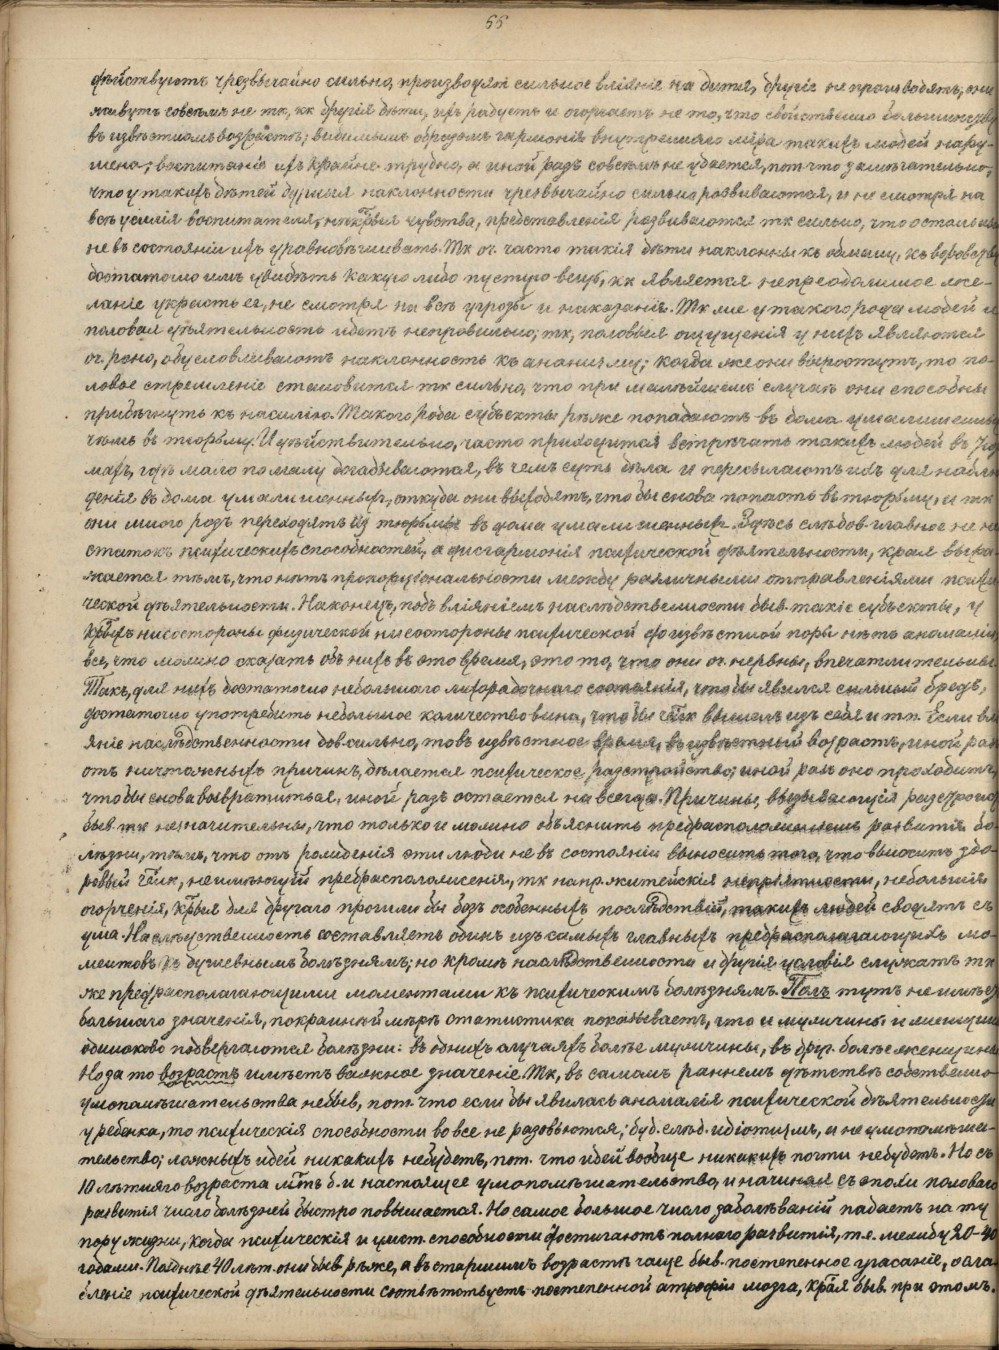 55
дѣйствуютъ чрезвычайно сильно, производятъ сильное влiянiе на дитя, другiе не производятъ; они
живутъ совсѣмъ не тк, кк другiя дѣти, ихъ радуетъ и огорчаетъ не то, что свойственно большинству
въ извѣстномъ возрастѣ; видимымъ образомъ гармонiя внутренняго мiра такихъ людей нару-
шена; воспитанiе ихъ крайне трудно, а иной разъ совсѣмъ не удается, пот. что замѣчательно,
что у такихъ дѣтей дурныя наклонности чрезвычайно сильно развиваются, и не смотря на
всѣ усилiя воспитателя, нѣкрыя чувства, представленiя развиваются тк сильно, что остальныя
не въ состоянiи ихъ уравновѣшивать. Тк оч. часто такiя дѣти наклонны къ обману, къ воровству
достаточно имъ увидѣть какую либо пустую вещь, кк является непреодолимое же-
ланiе украсть ее, не смотря на всѣ угрозы и наказанiя. Тк же у такого рода людей и
половая дѣятельность идетъ неправильно; тк, половыя ощущенiя у нихъ являются
оч. рано, обусловливаютъ наклонность къ онанизму; когда же они выростутъ, то по-
ловое стремленiе становится тк сильно, что при малѣйшемъ случаѣ они способны
прибѣгнуть къ насилiю. Такого рода субъекты рѣже попадаютъ въ дома умалишенныхъ
чѣмъ въ тюрьму. И дѣйствительно, часто приходится встрѣчать такихъ людей въ тюр-
махъ, гдѣ мало по малу догадываются, въ чемъ суть дѣла и пересылаютъ ихъ для наблю-
денiя въ дома умалишенныхъ, откуда они выходятъ, что бы снова попасть въ тюрьму, и тк
они много разъ переходятъ из тюрьмы въ дома умалишенныхъ. Здѣсь слѣдов. главное не не
статокъ психическихъ способностей, а дисгармонiя психической дѣятельности, края выра-
жается тѣмъ, что нѣтъ пропорцiональности между различными отправленiями психи
ческой дѣятельности. Наконецъ, подъ влiянiемъ наслѣдственности быв. такiе субъекты, у
крыхъ ни со стороны физической ни со стороны психической до извѣстной поры нѣтъ аномалiи
все, что можно сказать объ нихъ въ это время, это то, что они оч. нервны, впечатлительны.
Такъ, для нихъ достаточно небольшаго лихорадочнаго состоянiя, что бы явился сильный бредъ,
достаточно употребить небольшое количество вина, что бы чвк вышелъ изъ себя и т.п. Если влi
янiе наслѣдственности дов. сильно, то въ извѣстное время, въ извѣстный возрастъ, иной раз
отъ ничтожныхъ причинъ, дѣлается психическое разстройство; иной разъ оно проходитъ,
что бы снова возвратиться, иной разъ остается на всегда. Причины, вызывающiя разстройство
быв. тк незначительны, что только и можно объяснить предрасположенiемъ развитiе бо-
лѣзни, тѣмъ, что отъ рожденiя эти люди не въ состоянiи выносить того, что выноситъ здо-
ровый чвк, не имѣющiй предрасположенiя, тк напр. житейскiя непрiятности, небольшiя
огорченiя, крыя для другаго прошли бы безъ особенныхъ послѣдствiй, такихъ людей сводятъ съ
ума. Наслѣдственность составляетъ одинъ изъ самыхъ главныхъ предрасполагающихъ мо-
ментовъ къ душевнымъ болѣзнямъ; но кромѣ наслѣдственности и другiя условiя служатъ тк
же предрасполагающими моментами къ психическимъ болѣзнямъ. Полъ тутъ не имѣет
большаго значенiя, по крайней мѣрѣ статистика показываетъ, что и мужчины и женщины
одинаково подвергаются болѣзни: въ однихъ случаяхъ болѣе мужчины, въ друг. болѣе женщины
Но за то возрастъ имѣетъ важное значенiе. Тк, въ самомъ раннемъ дѣтствѣ собственно
умопомѣшательства не быв., пот. что если бы явилась аномалiя психической дѣятельности
у ребенка, то психическiя способности во все не разовьются; буд. слѣд. идiотизмъ, и не умопомѣша-
тельство; ложныхъ идей никакихъ не будетъ, пот. что идей вообще никакихъ почти не будетъ. Но съ
10 лѣтняго возраста мтъ б. и настоящее умопомѣшательство, и начиная съ эпохи половаго
развитiя число болѣзней быстро повышается. Но самое большое число заболѣванiй падаетъ на ту
пору жизни, когда психическiя и умст. способности достигаютъ полнаго развитiя, т.е. между 20-40
годами. Позднѣе 40 лѣт. они быв. рѣже, а въ старшимъ возрастѣ чаще быв. постепенное угасанiе, осла-
бленiе психической дѣятельности соотвѣтствуетъ постепенной атрофiи мозга, края быв. при этомъ.